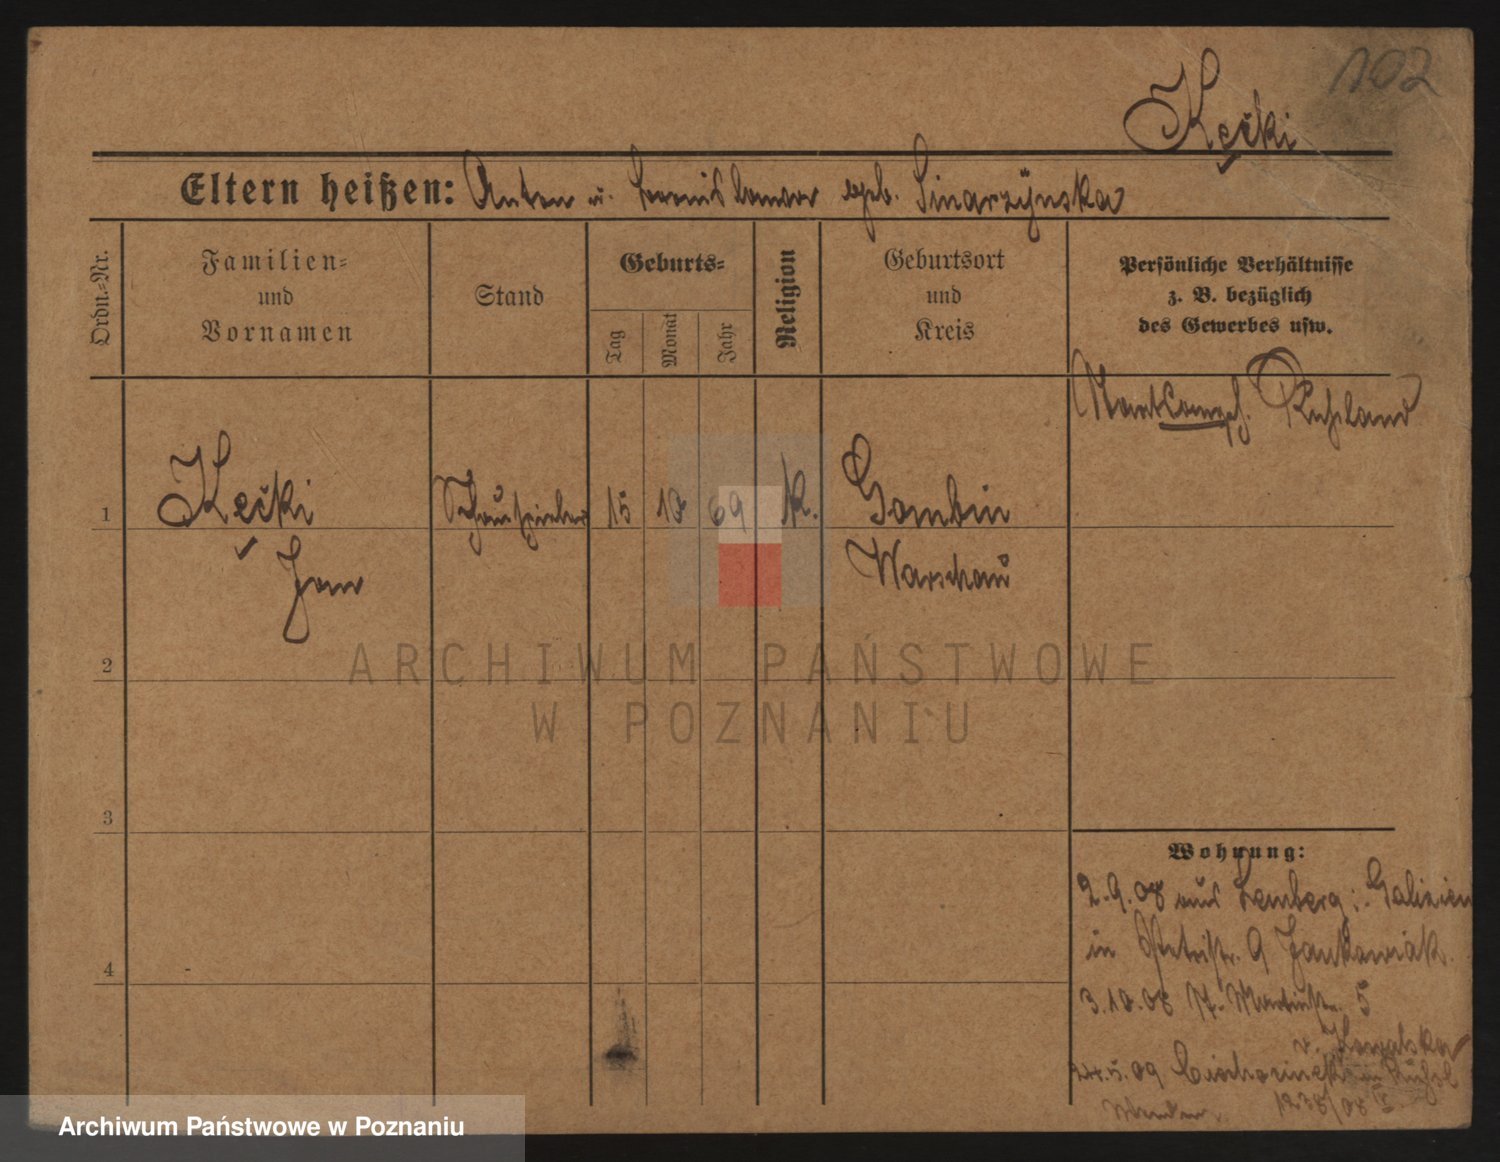 102
Kečki
Eltern heißen: Anton u. geb. Sinarzÿnska
Ordn.=Nr.
Familien=
und
Vornamen
Stand
Geburts=
Tag
Monat
Jahr
Religion
Geburtsort
und
Kreis
Persönliche Verhältnisse
z. B. bezüglich
des Gewerbes usw.
Rußland
1 Kečki Schauspieler 15 10 69 K. Gombin
Jan Warschau
2
3
4
Wohnung:
2.9.08 aus Lemberg: Galizien
in Petristr. 9 Jankowiak.
3.10.08 Martinstr. 5
v. Kowalska
24.5.09 in Rußl
1238/08
ARCHIWUM PAŃSTWOWE
W POZNANIU
Archiwum Państwowe w Poznaniu